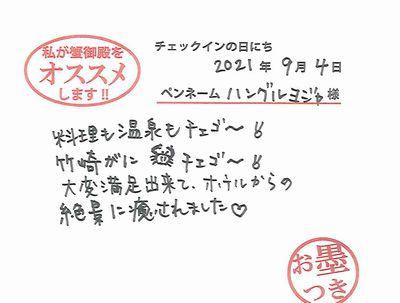 私が蟹御殿を
オススメ
します!!
チェックインの日にち
2021年9月4日
ペンネーム ハングルヨジャ様
料理も温泉もチェゴ〜!!
竹崎がに チェゴ〜!!
大変満足出来て、ホテルからの
絶景に癒されました♡
お墨
つき